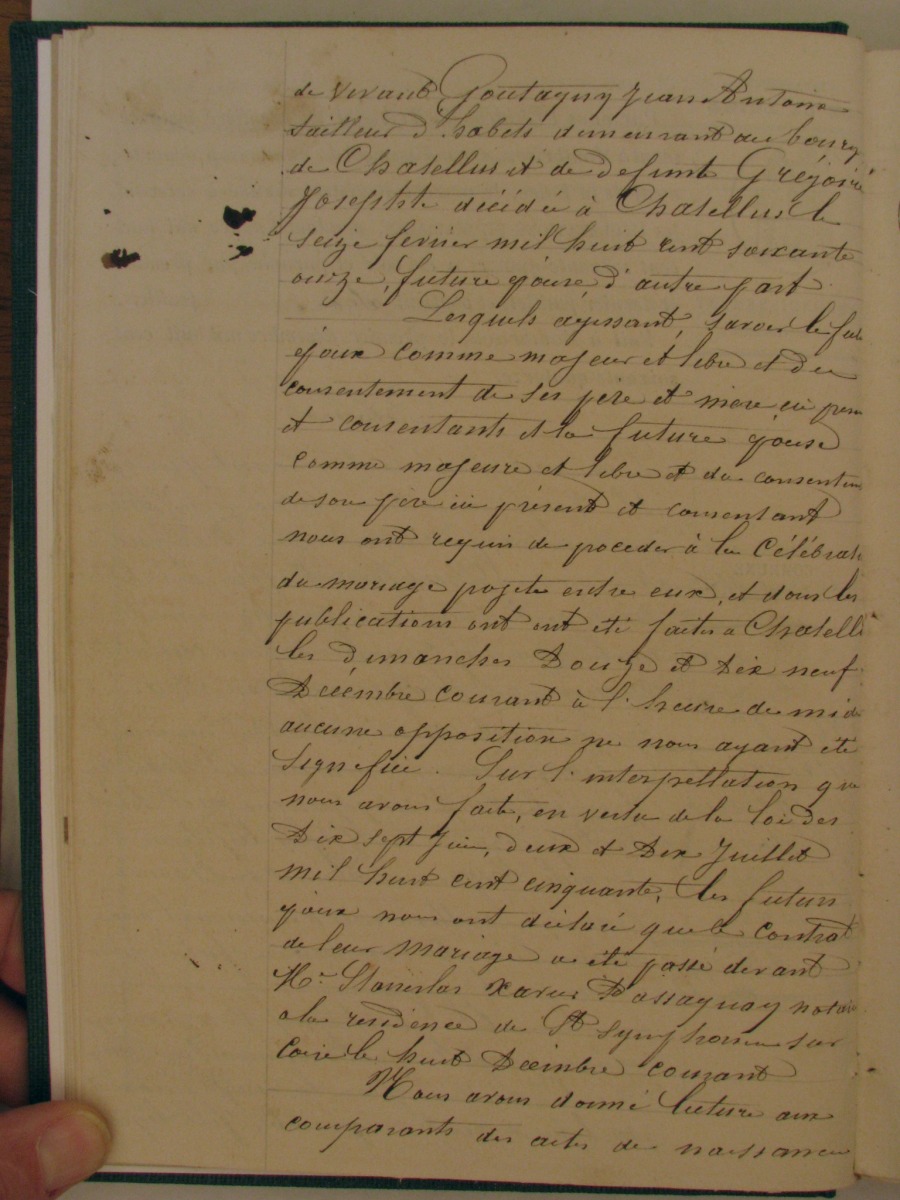 de vivant Goutagny Jean Antoine
tailleur d'habets demeurant au bourg
de Chatellus et de defunte Grégoire
Josephte décidée à Chatellus le
seize fevrier mil huit cent soixante
onze, future épouse d'autre part
Lesquels agissant, savoir le fut
époux comme majeur et libre et du
consentement de ses père et mère ici prese
et consentants et la future épouse
comme majeure et libre et du consentem
de son père ici présent et consentant
nous ont requis de proceder à la Célébrati
du mariage projeté entre eux, et dont les
publications ont ont été faites a Chatell
les dimanches Douze et Dix neuf
Décémbre courant à l'heure de midi
aucune opposition ne nous ayant été
signefiée. Sur l'interpellation que
nous avons faite, en vertu de la loi des
Dix sept Juin, deux et Dix Juillet
mil huit cent cinquante, les futurs
époux nous ont déclaré que le contrat
de leur mariage a été passé devant
Me Stanislas Xavier Passaguay notaire
a la residence de St Symphorien sur
Coise le huit Décémbre courant
Nous avons donné lecture aux
comparants des actes de naissance